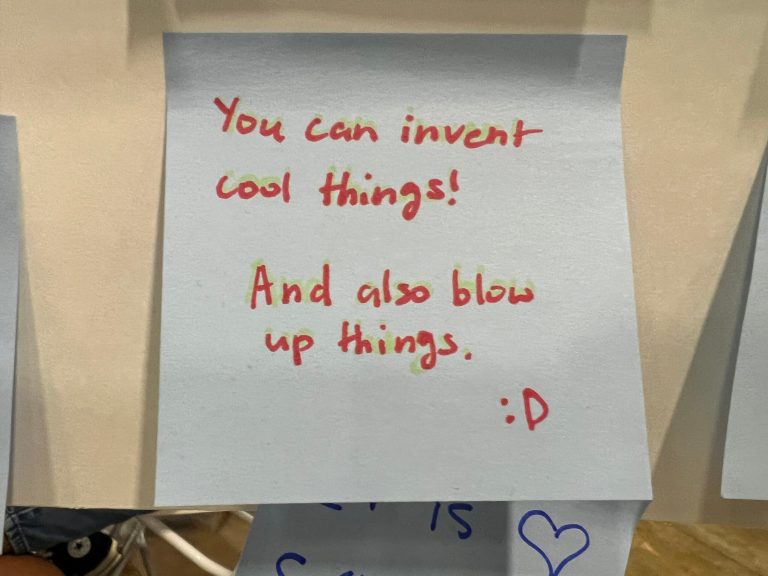 You can invent
cool things!
And also blow
up things.
:D
is